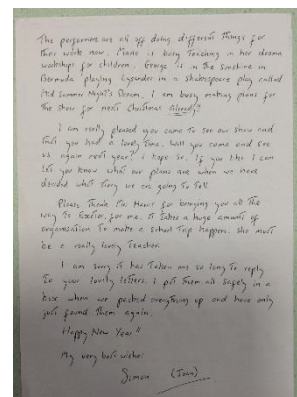 The performers are all off doing different things for
their work now. Marie is busy teaching in her drama
workshops for children, George is in the sunshine in
Bermuda playing Lysander in a Shakespeare play called
Mid Summer Night's Dream. I am busy making plans for
the show for next Christmas already!
I am really pleased you came to see our show and
that you had a lovely time. Will you come and see
us again next year? I hope so. If you like I can
let you know what our plans are when we have
decided what story we are going to tell.
Please thank for bringing you all the
way to Exeter for me. It takes a huge amount of
organisation to make a school trip happen. She must
be a really lovely teacher.
I am sorry it has taken me so long to reply
to your lovely letters. I put them all safely in a
box when we packed everything up and have only
just found them again.
Happy New Year!!
My very best wishes
Simon